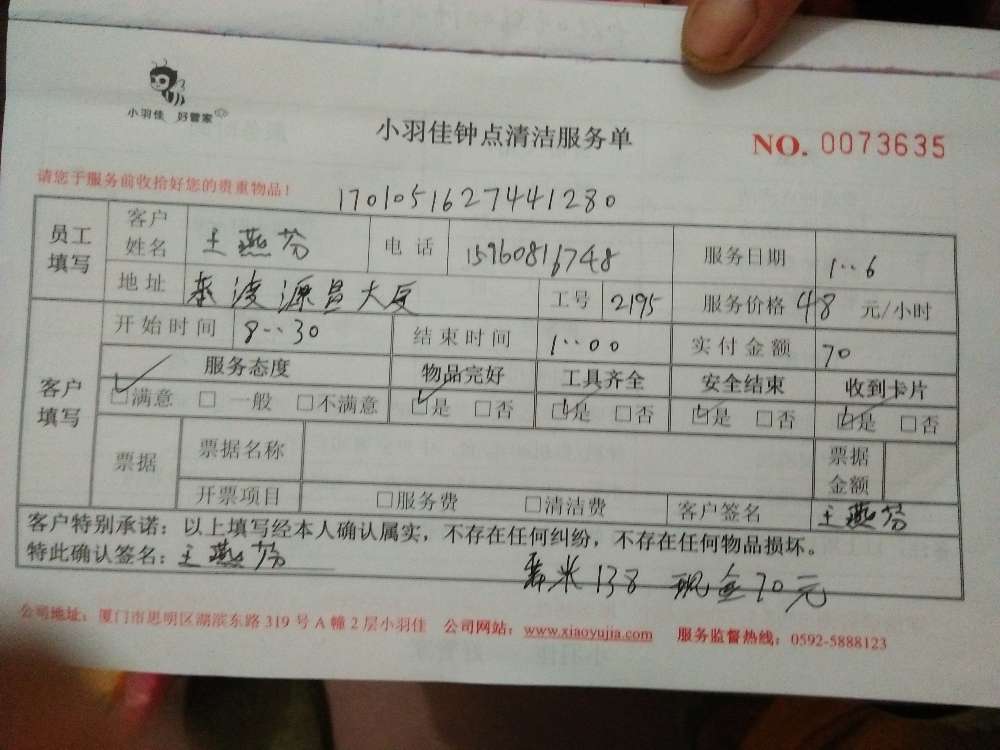 小羽佳 好管家
小羽佳钟点清洁服务单
NO. 0073635
请您于服务前收拾好您的贵重物品!
1701051627441280
员工填写 客户姓名 王燕芬 电话 15960816748 服务日期 1..6
地址 泰凌源昌大厦 工号 2195 服务价格 48 元/小时
客户填写 开始时间 8..30 结束时间 1..00 实付金额 70
服务态度 物品完好 工具齐全 安全结束 收到卡片
☑满意 □ 一般 □不满意 ☑是 □否 ☑是 □否 ☑是 □否 ☑是 □否
票据 票据名称 票据金额
开票项目 □服务费 □清洁费 客户签名 王燕芬
客户特别承诺:以上填写经本人确认属实,不存在任何纠纷,不存在任何物品损坏。
特此确认签名:王燕芬
米138 现金70元
公司地址:厦门市思明区湖滨东路 319 号 A 幢 2 层小羽佳 公司网站:www.xiaoyujia.com 服务监督热线:0592-5888123